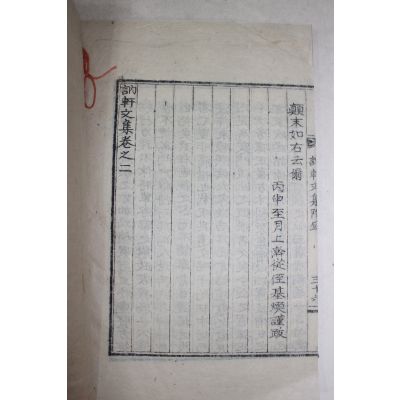 訥軒文集附錄 三十六
顚末如右云爾
丙申至月上澣從侄基煥謹跋
訥軒文集卷之二